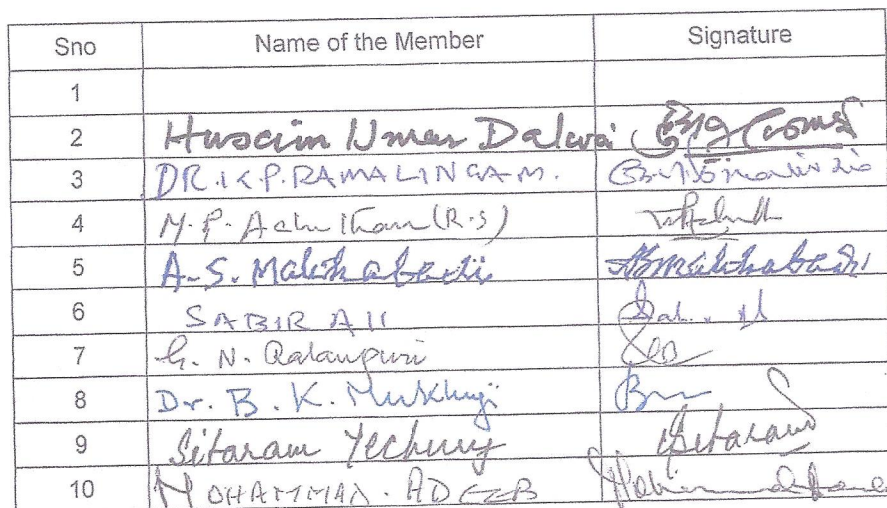 Sno Name of the Member Signature
1
2 Husain Umar Dalwai
3 DR.K.P.RAMALINGAM.
4 M.P. Achuthan (R.S)
5 A.S. Malihabadi ASMalihabadi
6 SABIR ALI Sab. Al
7 G. N. Ratanpuri
8 Dr. B. K. Mukherji
9 Sitaram Yechury Sitaram
10 MOHAMMAD. ADEEB